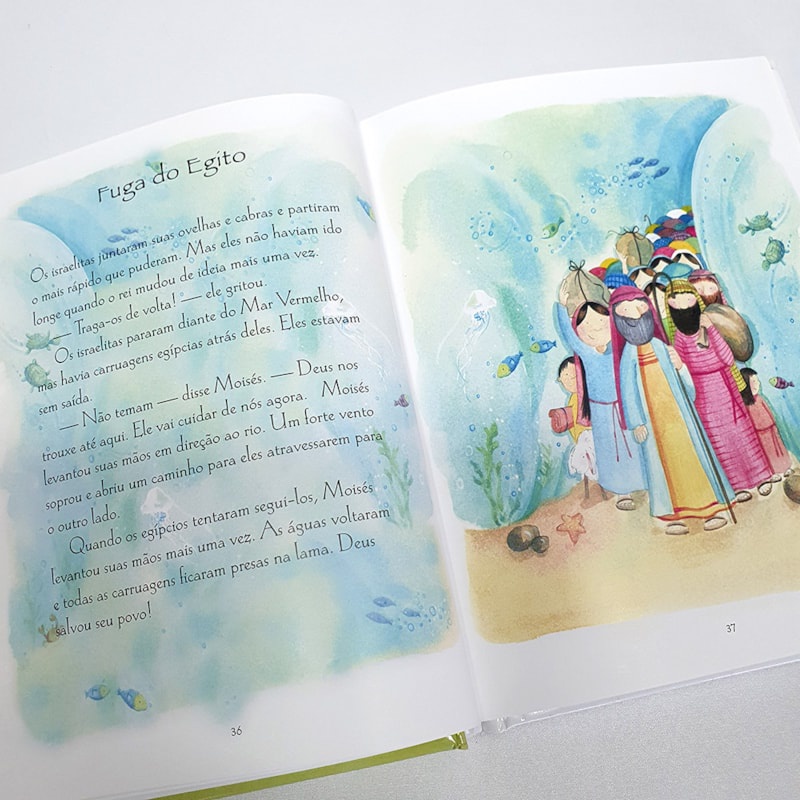 Fuga do Egito
Os israelitas juntaram suas ovelhas e cabras e partiram
o mais rápido que puderam. Mas eles não haviam ido
longe quando o rei mudou de ideia mais uma vez.
— Traga-os de volta! — ele gritou.
Os israelitas pararam diante do Mar Vermelho,
mas havia carruagens egípcias atrás deles. Eles estavam
sem saída.
— Não temam — disse Moisés. — Deus nos
trouxe até aqui. Ele vai cuidar de nós agora. Moisés
levantou suas mãos em direção ao rio. Um forte vento
soprou e abriu um caminho para eles atravessarem para
o outro lado.
Quando os egípcios tentaram segui-los, Moisés
levantou suas mãos mais uma vez. As águas voltaram
e todas as carruagens ficaram presas na lama. Deus
salvou seu povo!
36
37